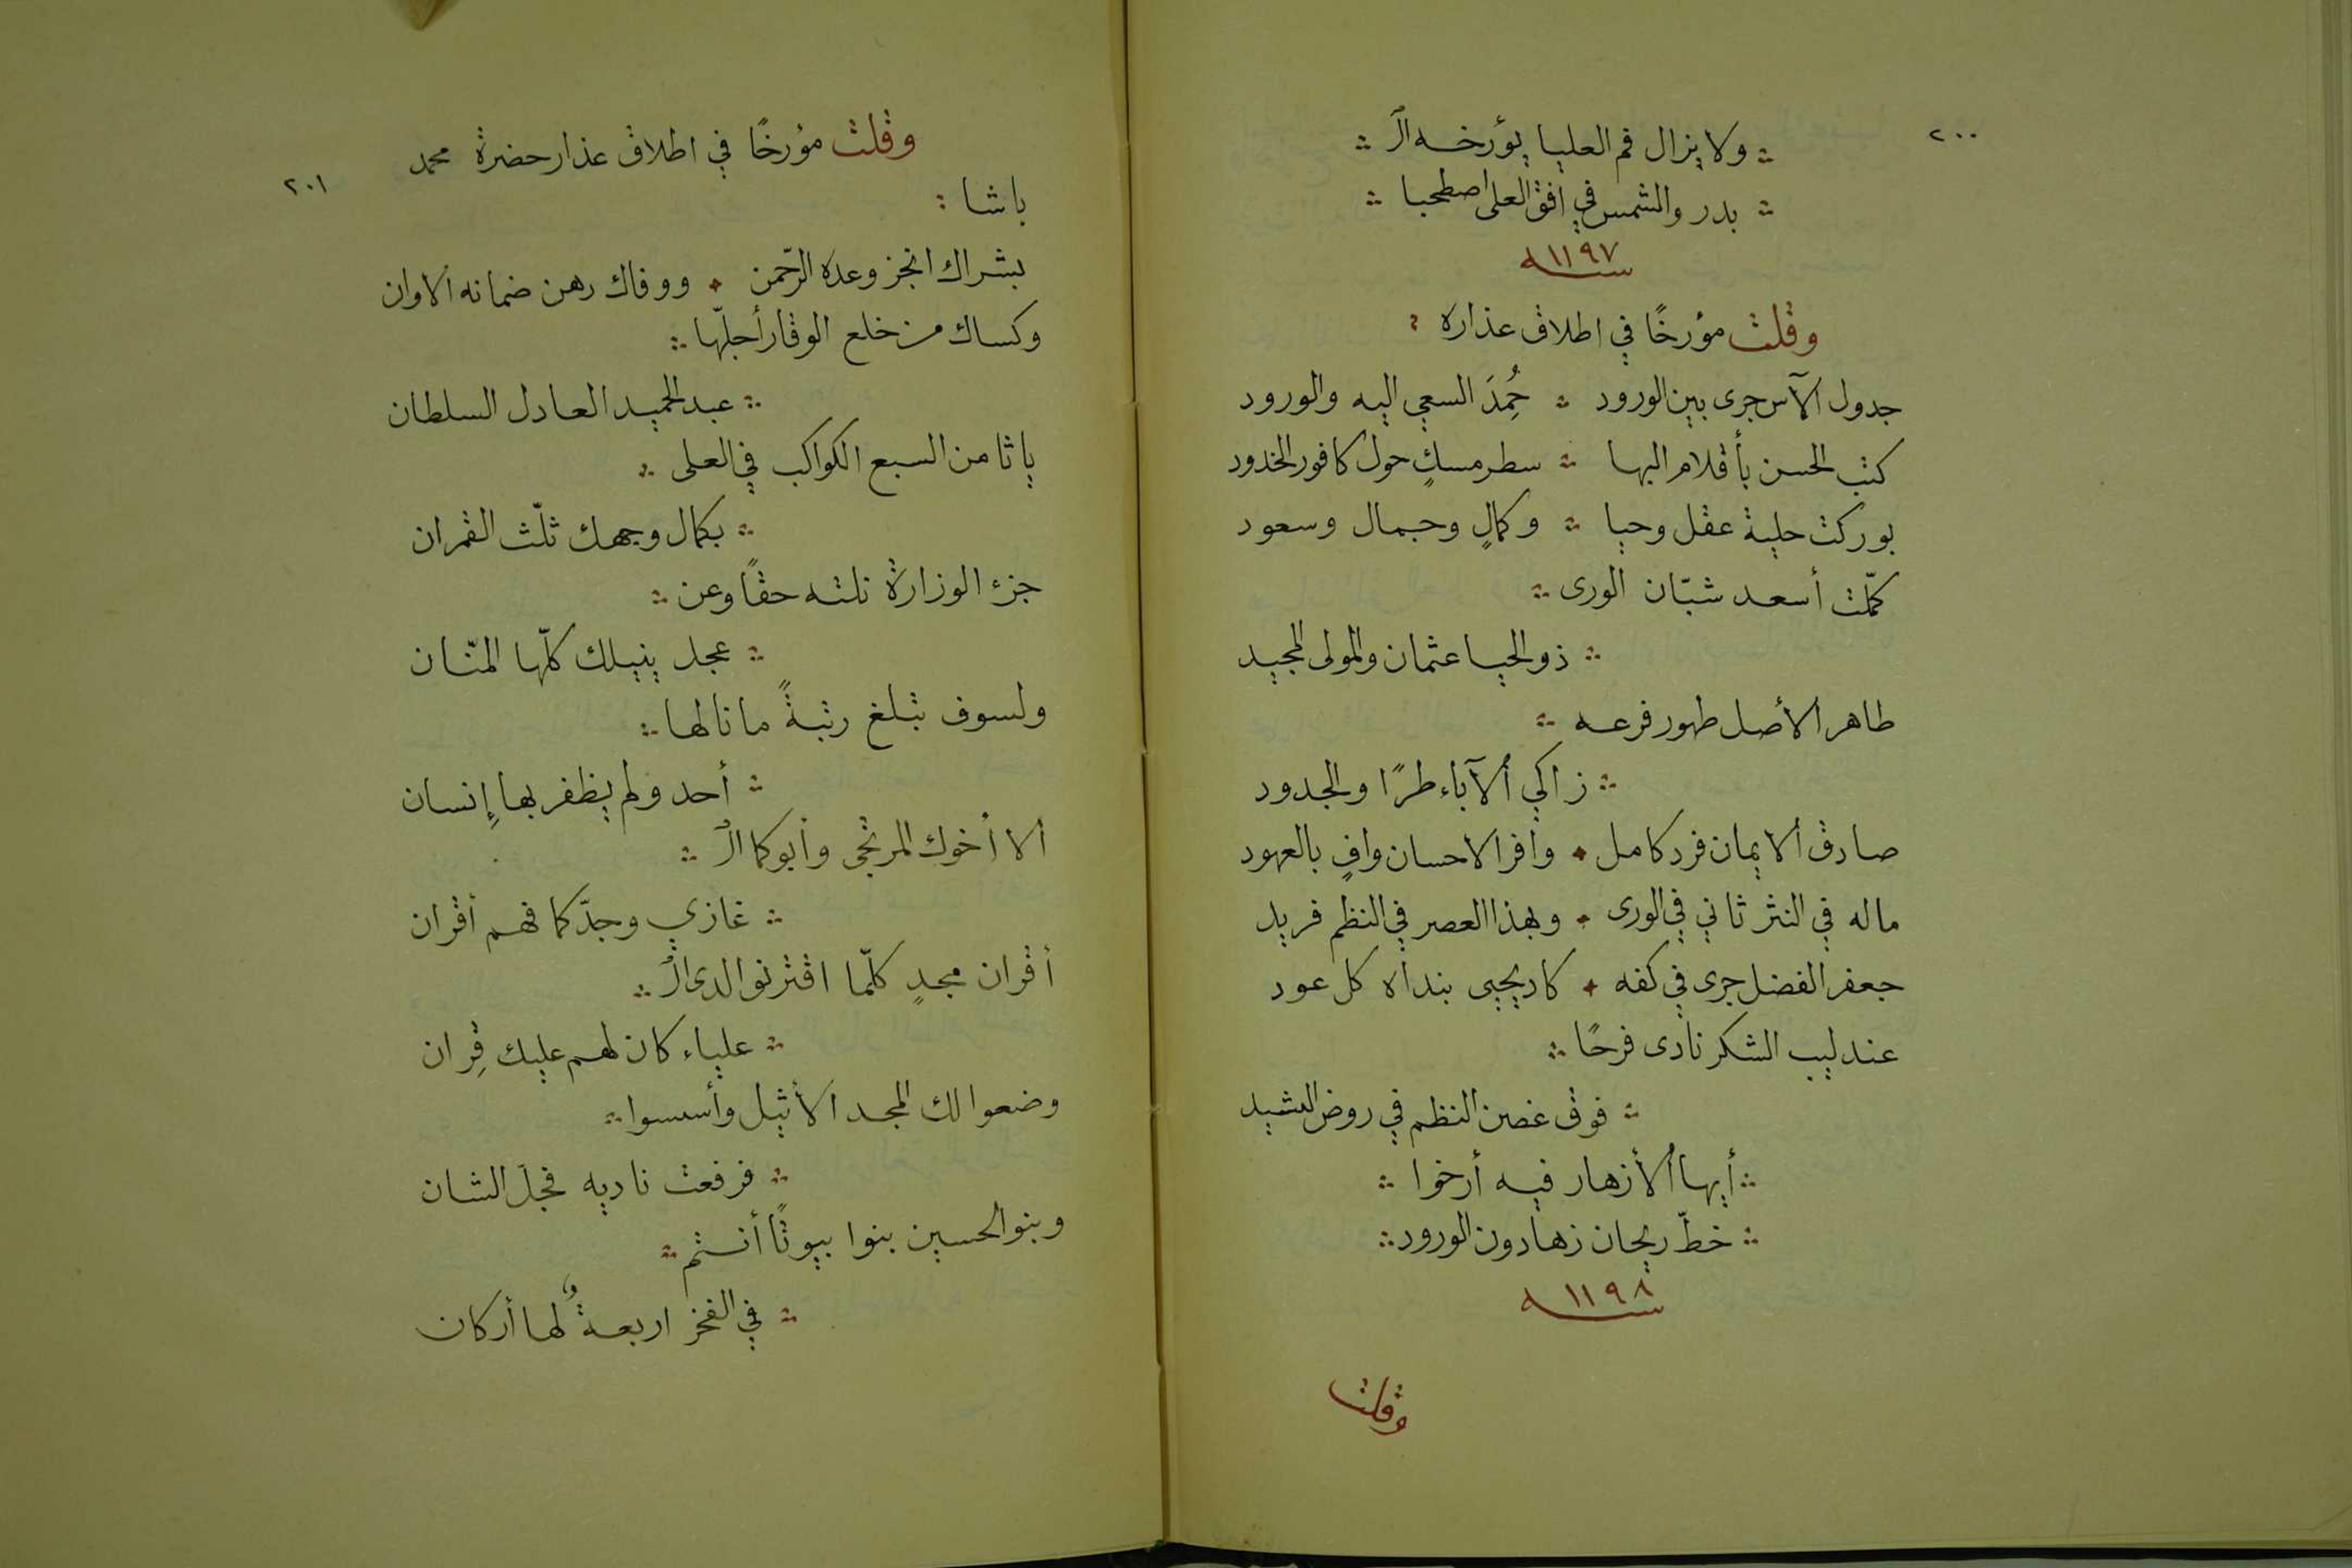 ٢٠٠
ولا يزال فم العليا يؤرخه الـ
بدر والشمس في افق العلى اصطحبا
سنة ١١٩٧
وقلت مؤرخًا في اطلاق عذاره
جدول الآس جرى بين الورود ∴ حُمِدَ السعي اليه والورود
كتب الحسن بأقلام البها ∴ سطر مسكٍ حول كافور الخدود
بوركت حلية عقل وحيا ∴ وكمالٍ وجمال وسعود
كمّلت أسعد شبّان الورى ∴
∴ ذو الحيا عثمان والمولى المجيد
طاهر الأصل طهور فرعه ∴
∴ زاكي الآباء طرًا والجدود
صادق الايمان فرد كامل ∴ وافر الاحسان وافٍ بالعهود
ماله في النثر ثاني في الورى ∴ وبهذا العصر في النظم فريد
جعفر الفضل جرى في كفه ∴ كاد يحيى بنداه كل عود
عندليب الشكر نادى فرحًا ∴
∴ فوق غصن النظم في روض النشيد
∴ أيها الأزهار فيه أرخوا ∴
∴ خطّ ريحان زها دون الورود ∴
سنة ١١٩٨
وقلت
٢٠١
وقلت مؤرخًا في اطلاق عذار حضرة محمد
باشا :
بشراك انجز وعده الرّحمن ∴ ووفاك رهن ضمانه الاوان
وكساك من خلع الوقار أجلّها ∴
∴ عبد الحميد العادل السلطان
يا ثامن السبع الكواكب في العلى ∴
∴ بكمال وجهك ثلّث القمران
جزء الوزارة نلته حقًا وعن ∴
∴ عجل ينيلك كلّها المنّان
ولسوف تبلغ رتبةً ما نالها ∴
∴ أحد ولم يظفر بها إِنسان
الا أخوك المرتجى وأبوكما الـ ∴
∴ غازي وجدّكما فهم أقران
أقران مجدٍ كلّما اقترنوا لدى الـ ∴
∴ علياء كان لهم عليك قِران
وضعوا لك المجد الأثيل وأسسوا ∴
∴ فرفعت ناديه فجلّ الشان
وبنو الحسين بنوا بيوتًا أنتم ∴
∴ في الفخر اربعةٌ لها أركان